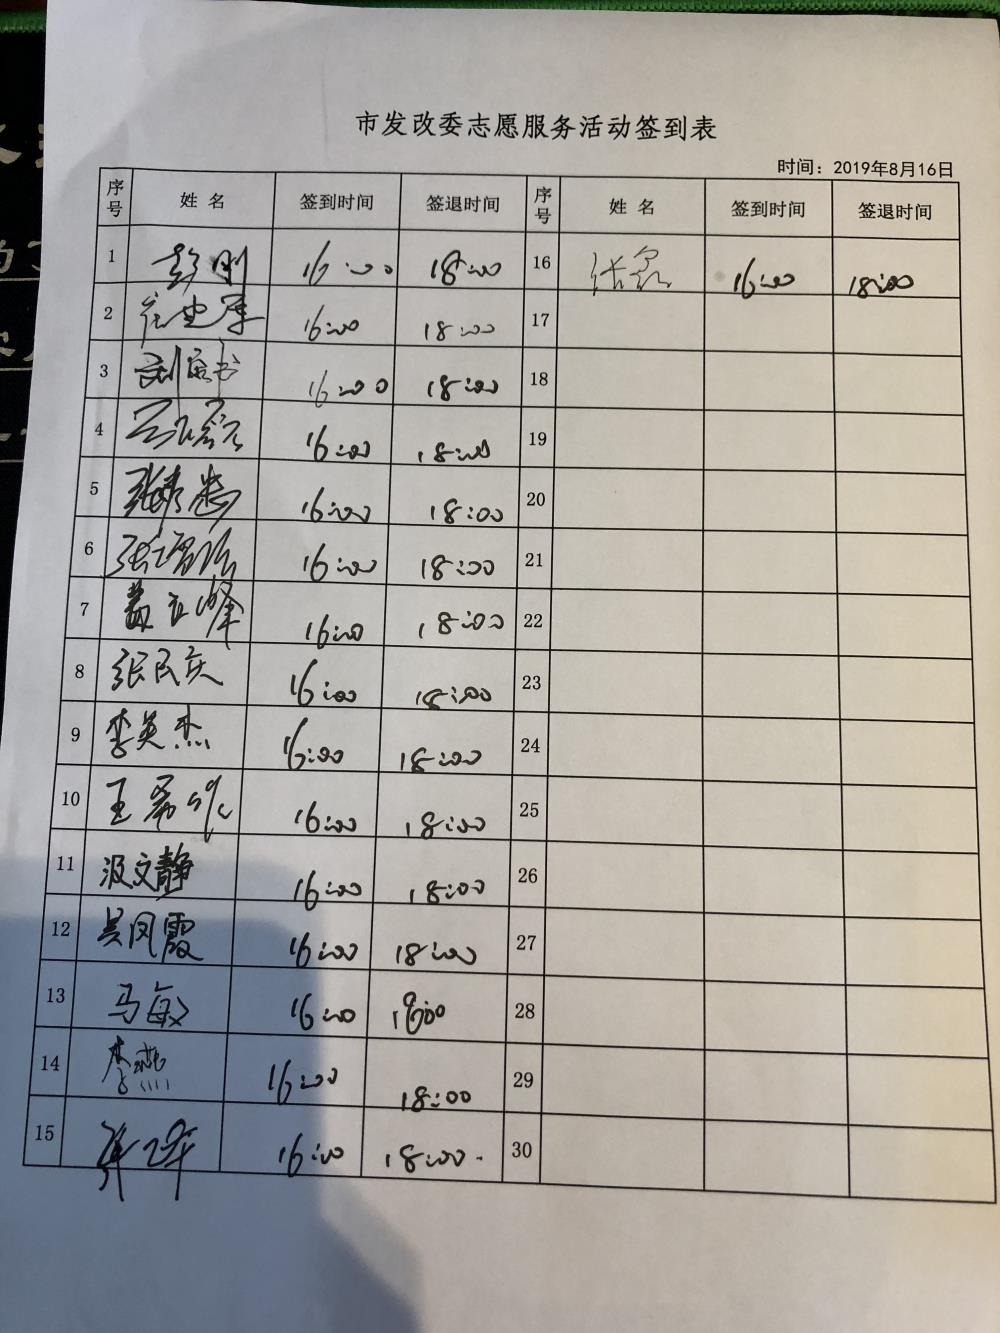 市发改委志愿服务活动签到表
时间：2019年8月16日
序号 姓名 签到时间 签退时间 序号 姓名 签到时间 签退时间
1 彭刚 16:00 18:00 16 张磊 16:00 18:00
2 16:00 18:00 17
3 16:00 18:00 18
4 16:00 18:00 19
5 16:00 18:00 20
6 16:00 18:00 21
7 16:00 18:00 22
8 张民庆 16:00 18:00 23
9 李英杰 16:00 18:00 24
10 王 16:00 18:00 25
11 汲文静 16:00 18:00 26
12 吴凤霞 16:00 18:00 27
13 马敏 16:00 18:00 28
14 李燕 16:00 18:00 29
15 16:00 18:00 30